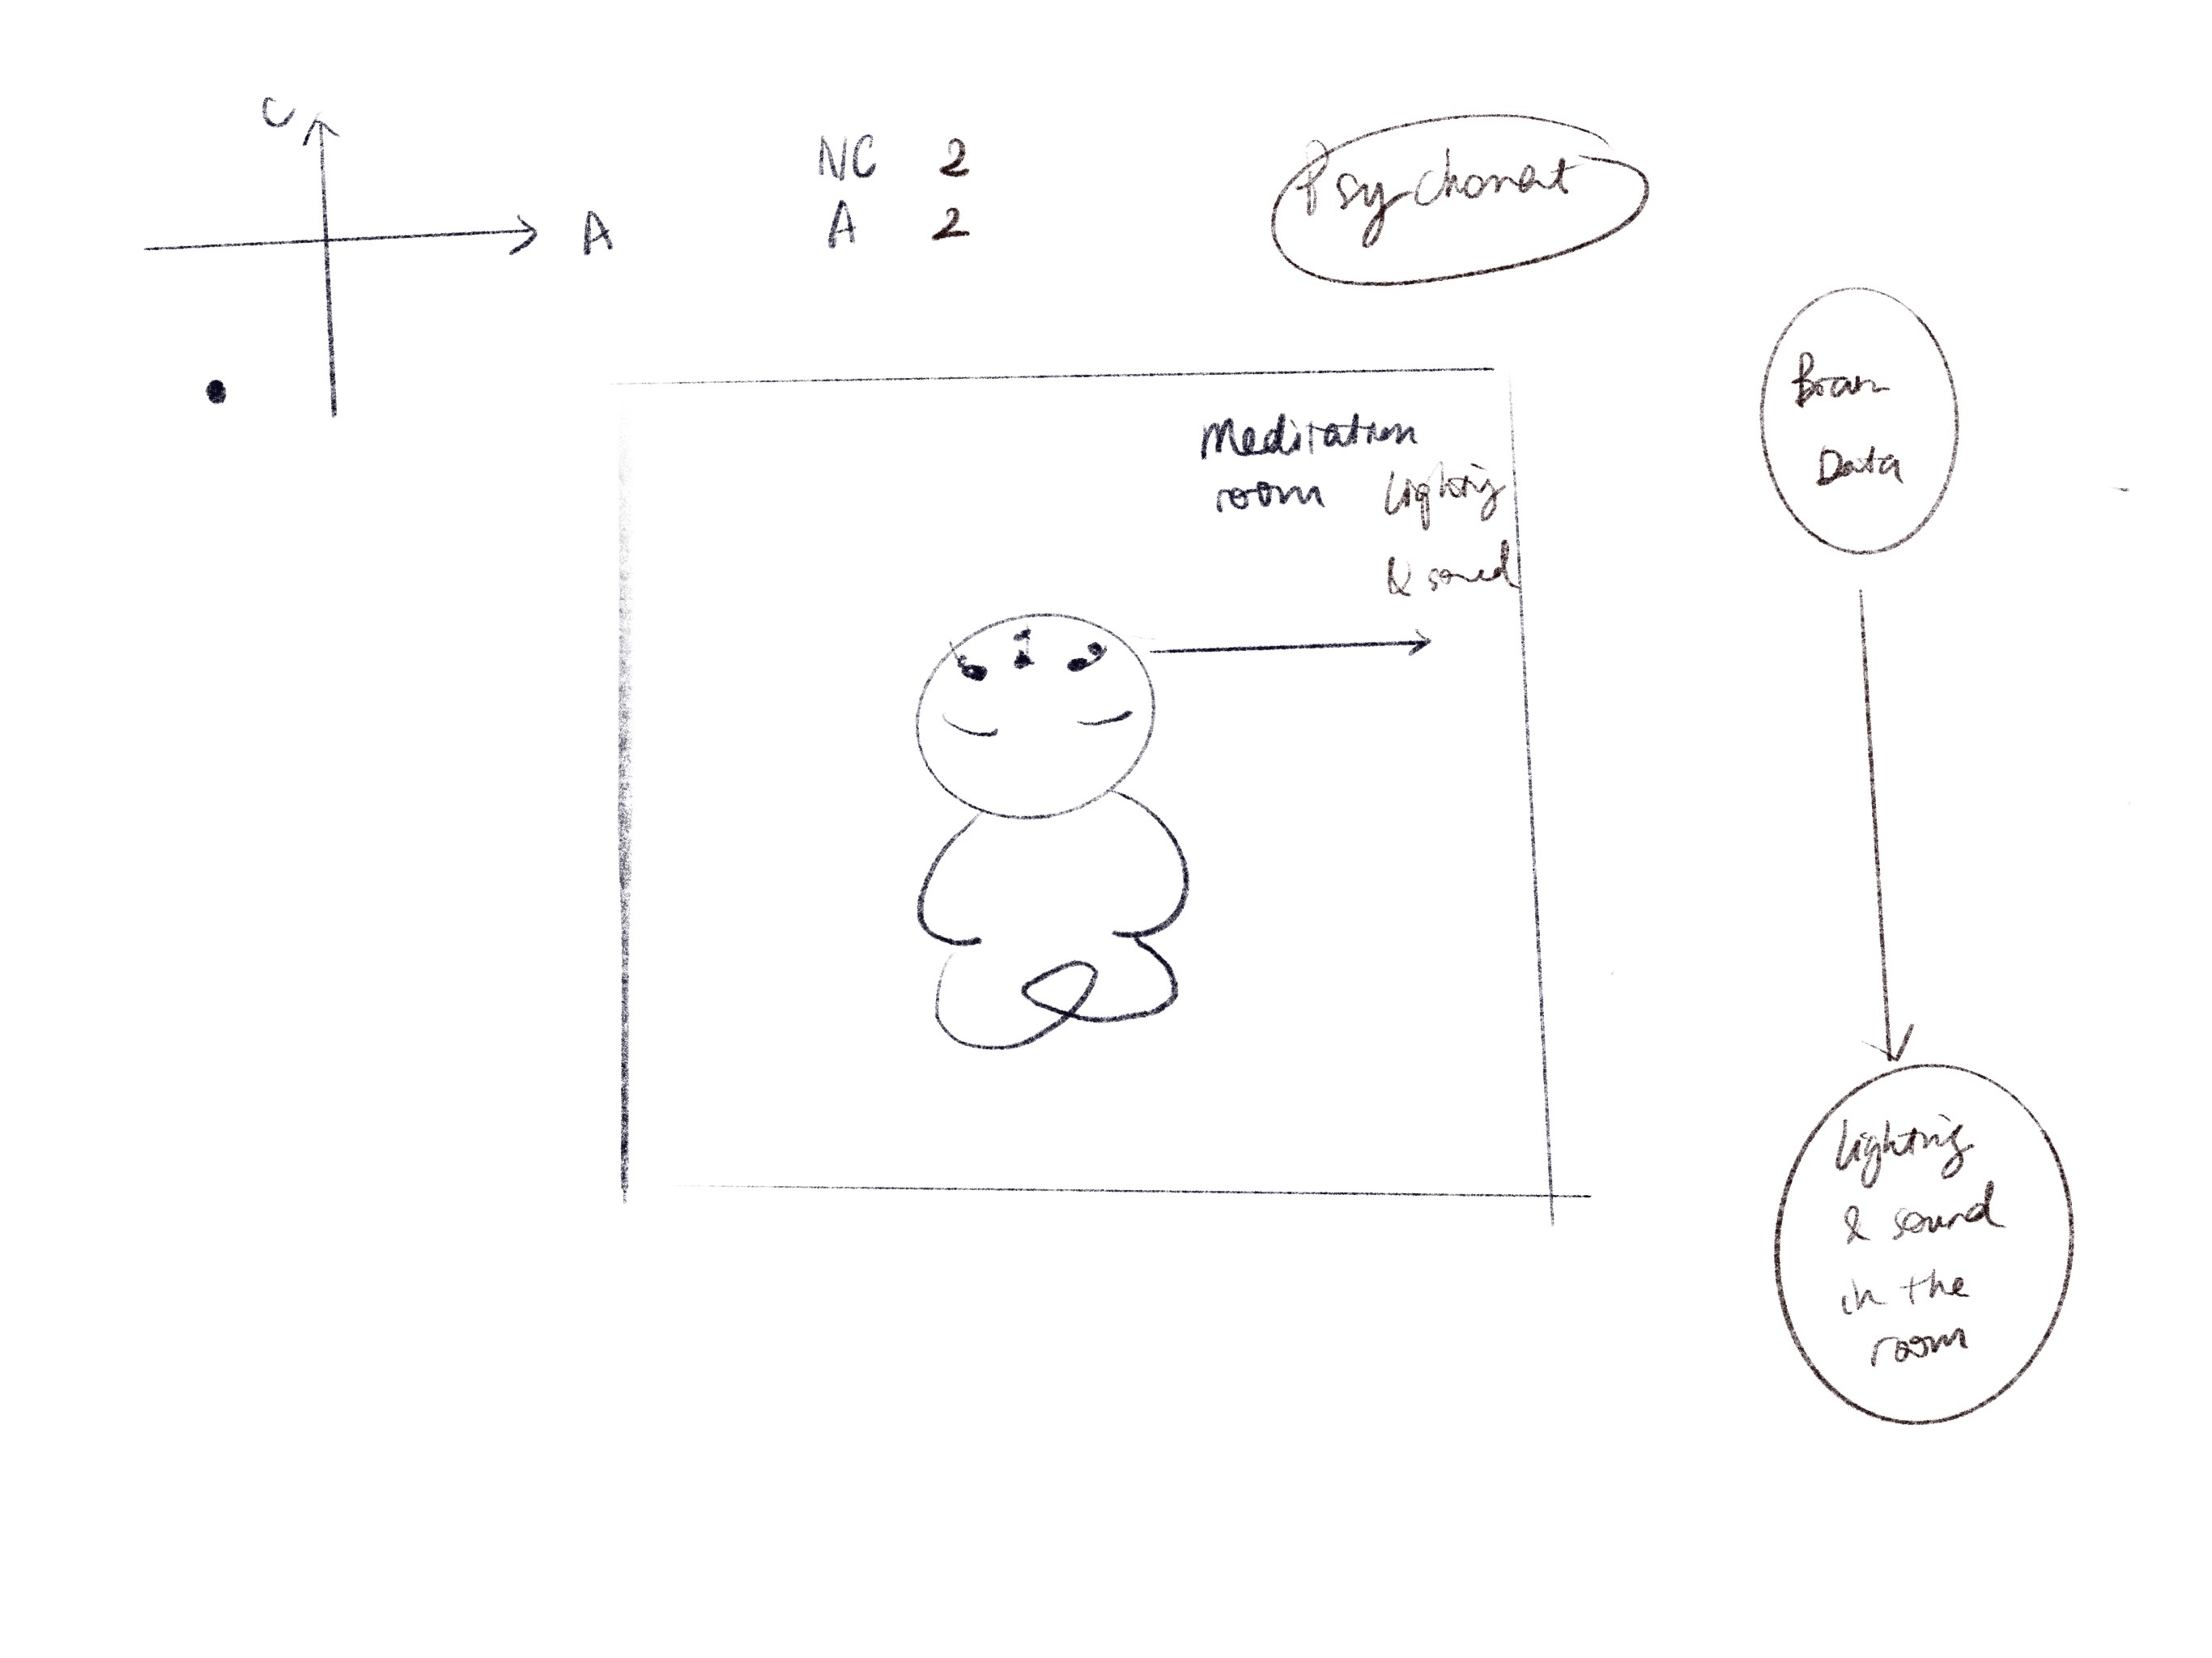 C
A
NC 2
A 2
Meditation
room
Lighting
& sound
Brain
Data
Lighting
& sound
in the
room